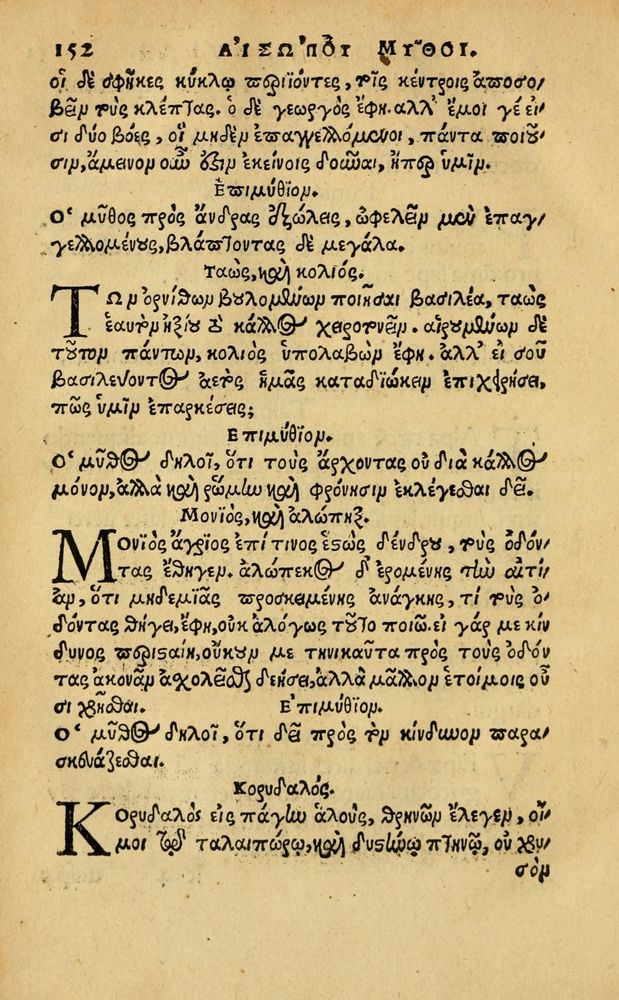 152 ΑΙΣΩΠΟΥ ΜΥΘΟΙ.
οἱ δὲ σφῆκες κύκλῳ περιϊόντες, τοῖς κέντροις ἀποσο-
βεῖν τοὺς κλέπτας. ὁ δὲ γεωργὸς ἔφη. ἀλλ' ἔμοι γέ εἰ-
σι δύο βόες, οἳ μηδὲν ἐπαγγελλόμενοι, πάντα ποιοῦ-
σιν, ἄμεινον οὖν ἐςὶν ἐκείνοις δοῦναι, ἤπερ ὑμῖν.
Ἐπιμύθιον.
Ο῾ μῦθος πρὸς ἄνδρας ἐξώλεις, ὠφελεῖν μὲν ἐπαγ-
γελλομένους, βλάπτοντας δὲ μεγάλα.
Ταὼς, καὶ κολιός.
ΤΩν ὀρνίθων βουλομένων ποιῆσαι βασιλέα, ταὼς
ἑαυτὸν ἠξίου διὰ κάλλος χειροτονεῖν. αἱρουμένων δὲ
τοῦτον πάντων, κολιὸς ὑπολαβὼν ἔφη. ἀλλ' εἰ σοῦ
βασιλεύοντος ἀετὸς ἡμᾶς καταδιώκειν ἐπιχειρήσει,
πῶς ὑμῖν ἐπαρκέσεις;
Ἐπιμύθιον.
Ο῾ μῦθος δηλοῖ, ὅτι τοὺς ἄρχοντας οὐ διὰ κάλλος
μόνον, ἀλλὰ καὶ ῥώμην καὶ φρόνησιν ἐκλέγεσθαι δεῖ.
Μονιὸς, καὶ ἀλώπηξ.
ΜΟνιὸς ἄγριος ἐπί τινος ἑςὼς δένδρου, τοὺς ὀδόν-
τας ἔθηγεν. ἀλώπεκος δ' ἐρομένης τὴν αἰτί-
αν, ὅτι μηδεμιᾶς προσκειμένης ἀνάγκης, τί τοὺς ὀ-
δόντας θήγει, ἔφη, οὐκ ἀλόγως τοῦτο ποιῶ. εἰ γάρ με κίν
δυνος περιςαίη, οὔκουν με τηνικαῦτα πρὸς τοὺς ὀδόν
τας ἀκονᾶν ἀσχολεῖσθαι δεήσει, ἀλλὰ μᾶλλον ἑτοίμοις οὖ
σι χρῆσθαι. Ἐπιμύθιον.
Ο῾ μῦθος δηλοῖ, ὅτι δεῖ πρὸς τὸν κίνδυνον παρα-
σκευάζεσθαι.
Κορυδαλός.
ΚΟρυδαλὸς εἰς πάγην ἁλοὺς, θρηνῶν ἔλεγεν, οἴ-
μοι τῷ ταλαιπώρῳ, καὶ δυςήνῳ πτηνῷ, οὐ χρυ-
σὸν